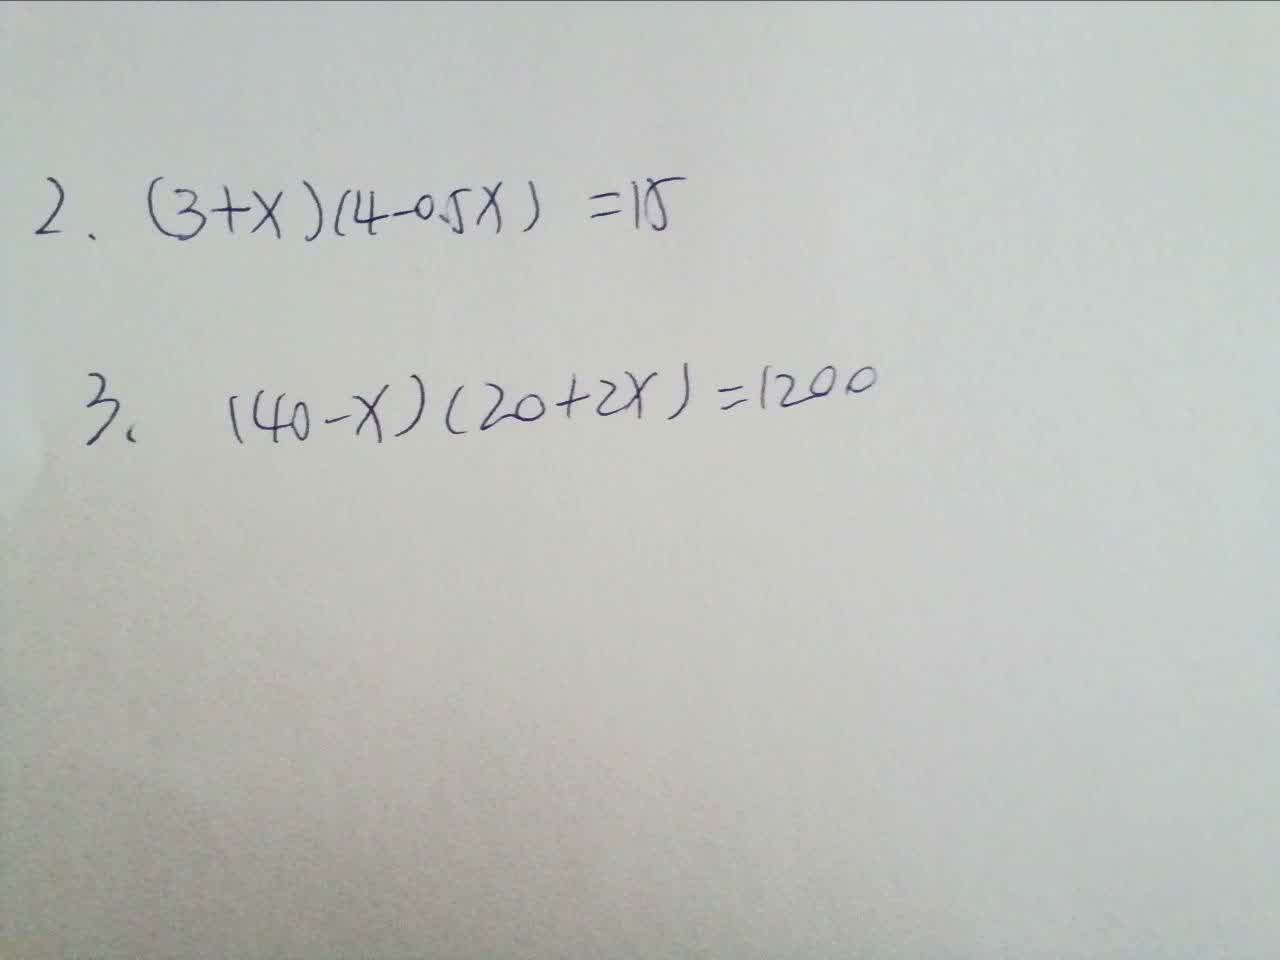 2. (3+X)(4-0.5X) =15
3. (40-X)(20+2X)=1200